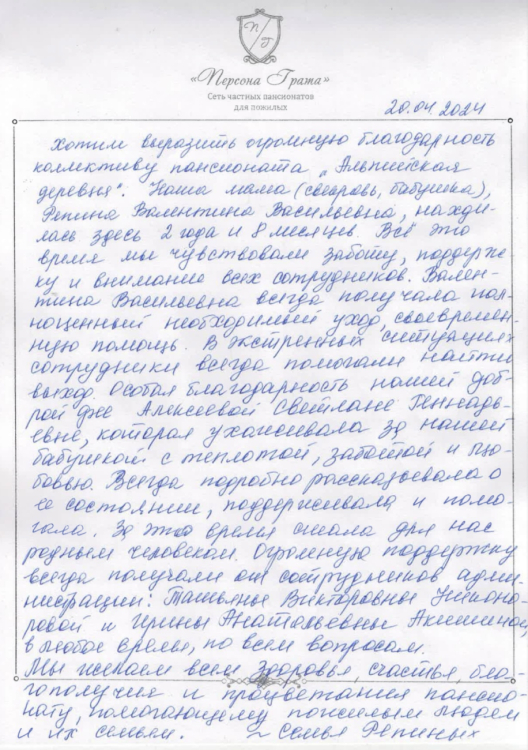 П/Г
«Персона Грата»
Сеть частных пансионатов
для пожилых
20.04.2024
Хотим выразить огромную благодарность
коллективу пансионата „Альпийская
деревня". Наша мама (свекровь, бабушка),
Репина Валентина Васильевна, находи-
лась здесь 2 года и 8 месяцев. Всё это
время мы чувствовали заботу, поддерж-
ку и внимание всех сотрудников. Вален-
тина Васильевна всегда получала пол-
ноценный необходимый уход, своевремен-
ную помощь. В экстренных ситуациях
сотрудники всегда помогали найти
выход. Особая благодарность нашей доб-
рой фее Алексеевой Светлане Геннадь-
евне, которая ухаживала за нашей
бабушкой с теплотой, заботой и лю-
бовью. Всегда подробно рассказывала о
её состоянии, поддерживала и помо-
гала. За это время стала для нас
родным человеком. Огромную поддержку
всегда получали от сотрудников адми-
нистрации: Татьяны Викторовны Никоно-
ровой и Ирины Анатольевны Акишиной
в любое время, по всем вопросам.
Мы желаем всем здоровья, счастья, бла-
гополучия и процветания пансио-
нату, помогающему пожилым людям
и их семьям. ~ Семья Репиных